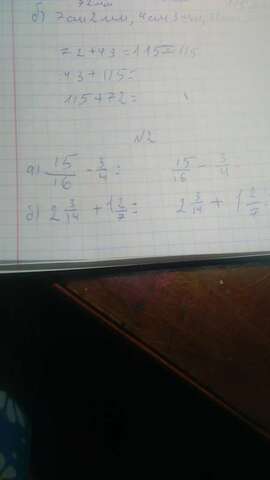 72мм
б) 7см2мм, 4см3мм,
72+43=115=115
43+115=
115+72=
№2
а) 15/16 - 3/4 = 15/16 - 3/4
б) 2 3/14 + 1 2/7 = 2 3/14 + 1 2/7